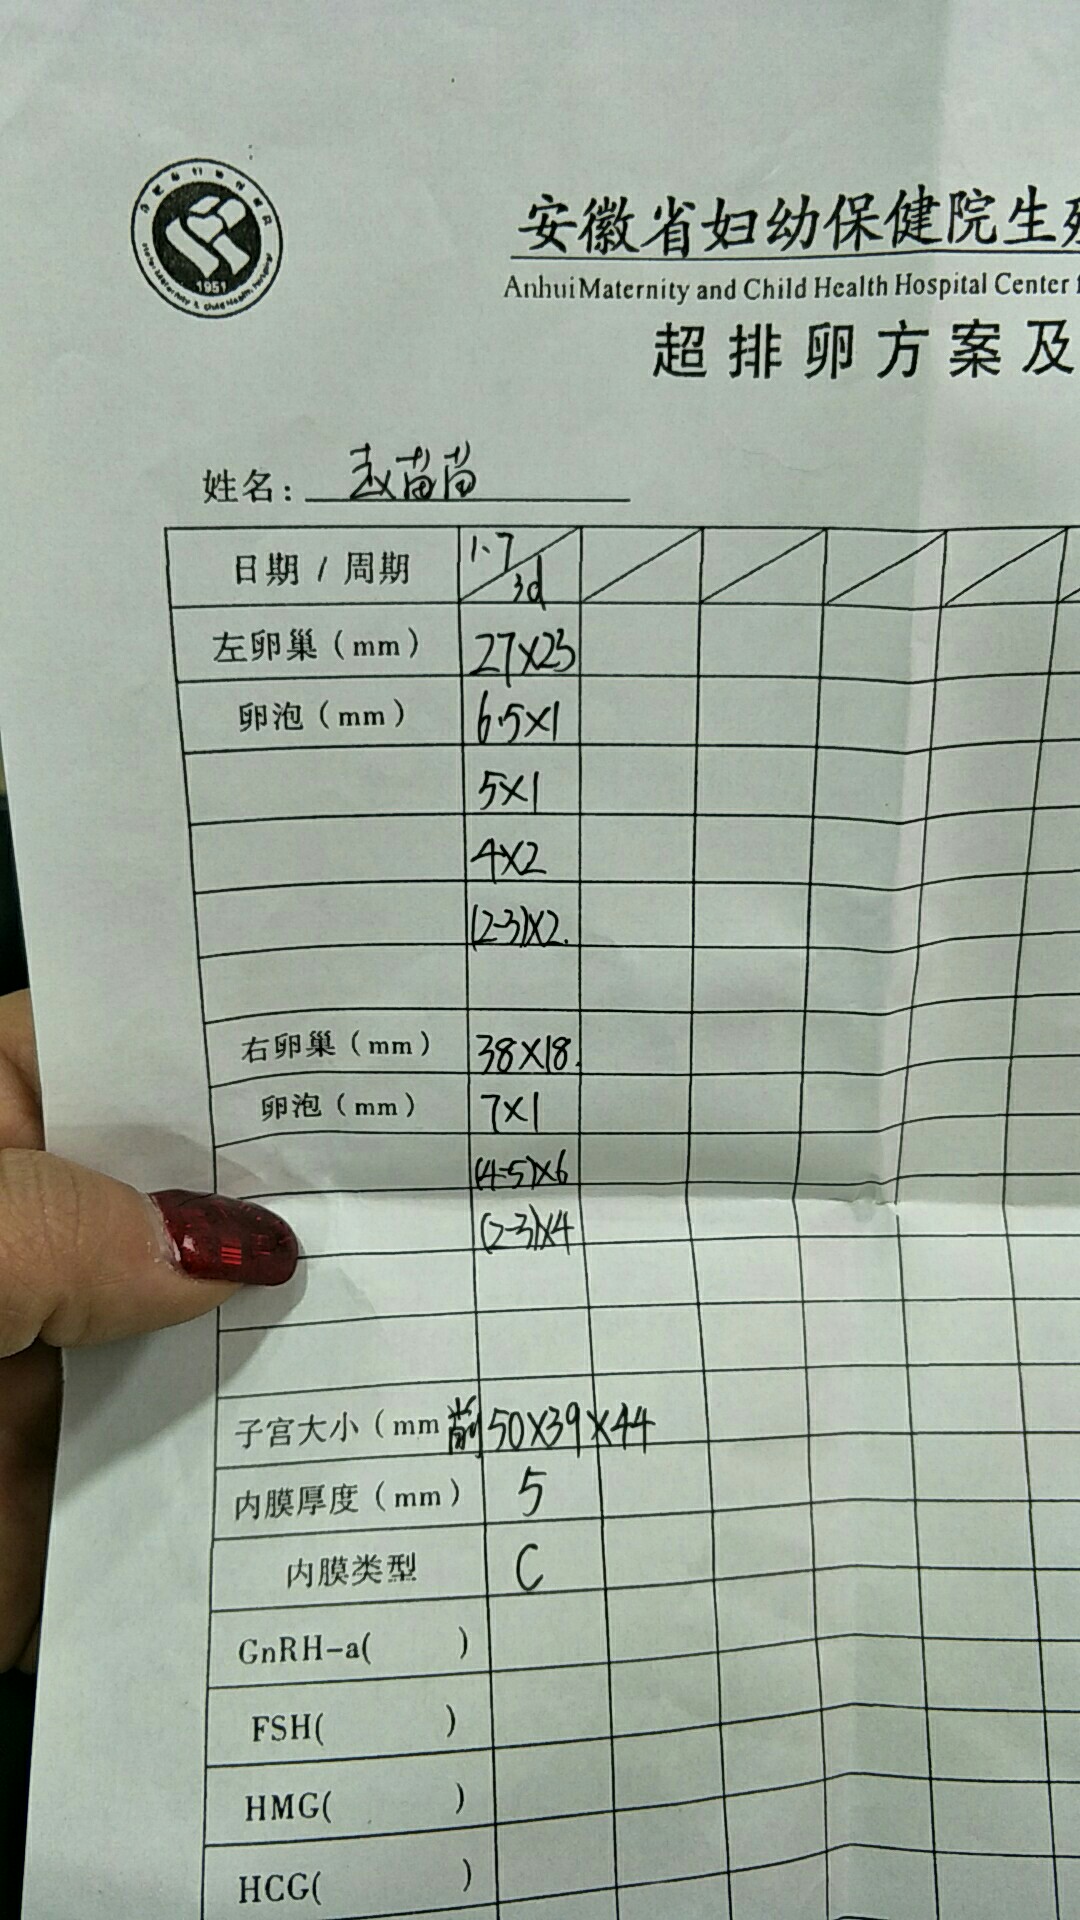 1951
安徽省妇幼保健院生殖
Anhui Maternity and Child Health Hospital Center f
超排卵方案及
姓名: 赵苗苗
日期 / 周期 1.7 3d
左卵巢(mm) 27×23
卵泡(mm) 6.5×1
5×1
4×2
(2-3)×2.
右卵巢(mm) 38×18.
卵泡(mm) 7×1
(4-5)×6
(2-3)×4
子宫大小(mm 前 50×39×44
内膜厚度(mm) 5
内膜类型 C
GnRH-a( )
FSH( )
HMG( )
HCG( )